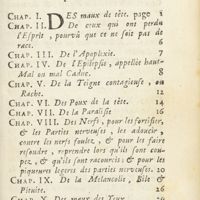 CHAP. I. DES maux de tête. page 1
CHAP. II. De ceux qui ont perdu
l'Esprit, pourvû que ce ne soit pas de
race. 6
CHAP. III. De l'Apoplexie. 7
CHAP. IV. De l'Epilepsie, appellée haut-
Mal ou mal Caduc. 8
CHAP. V. De la Teigne contagieuse, ou
Rache. 12
CHAP. VI. Des Poux de la tête. 14
CHAP. VII. De la Paralisie 16
CHAP. VIII. Des Nerfs, pour les fortifier,
& les Parties nerveuses, les adoucir,
contre les nerfs foulez, & pour les faire
resouder, & reprendre lors qu'ils sont cou-
pez, & qu'ils sont racourcis: & pour les
piqueures des parties nerveuses. 20
CHAP. IX. De la Mélancolie, Bile &
Pituite. 26
CHAP. X. Des maux des Yeux